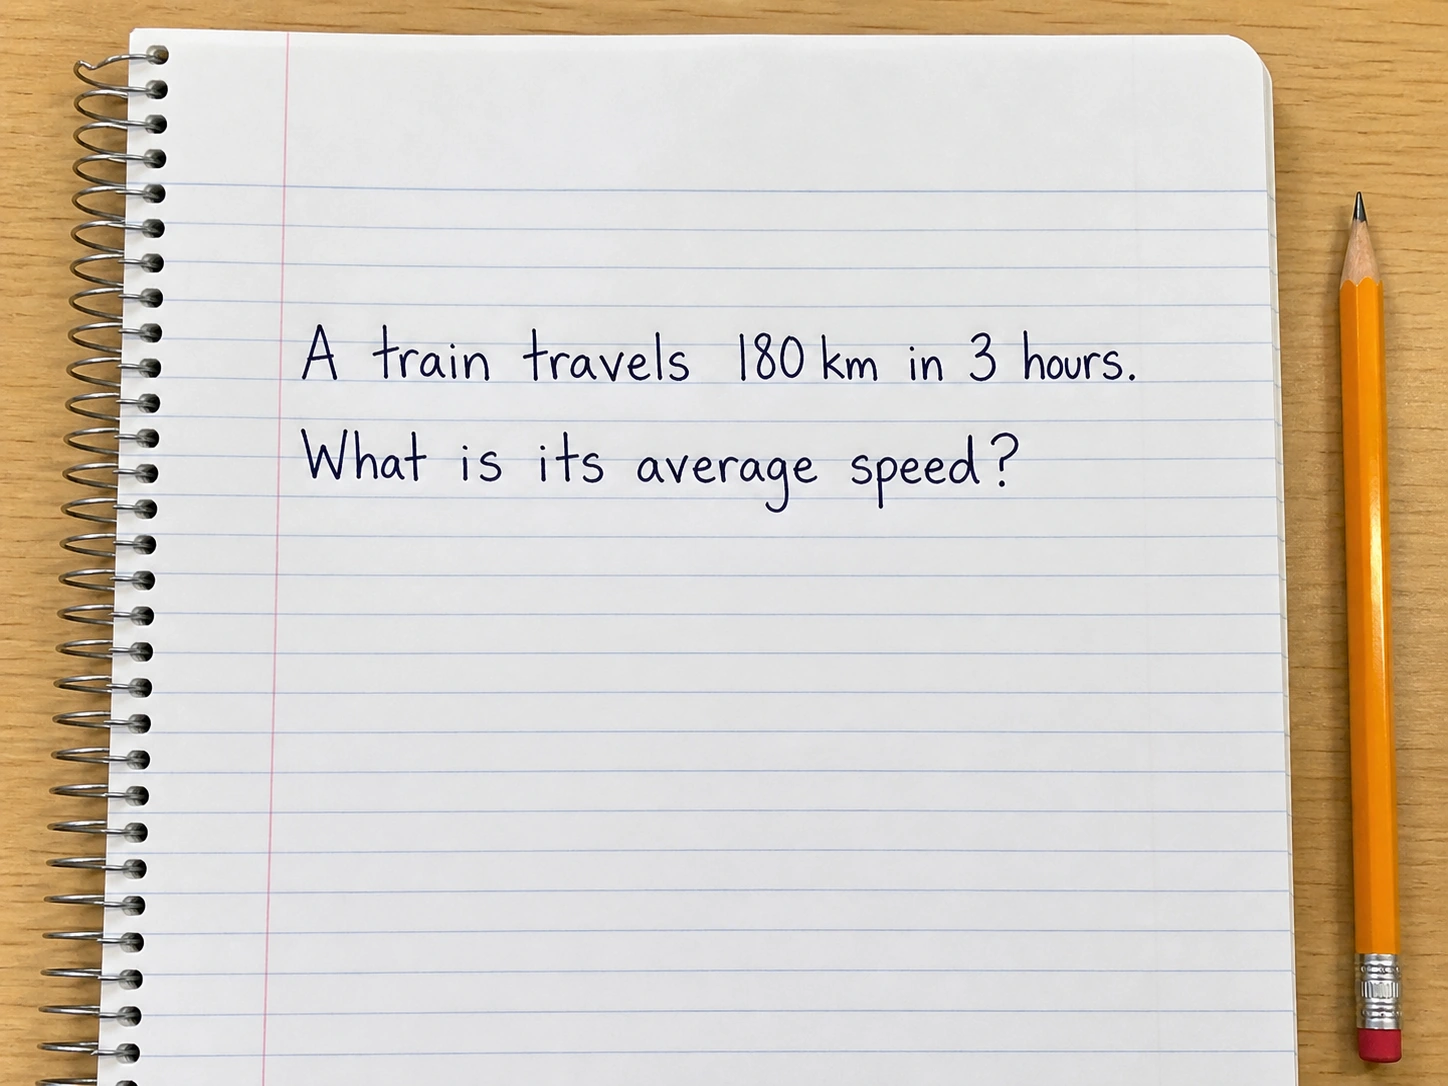 A train travels 180 km in 3 hours.
What is its average speed?